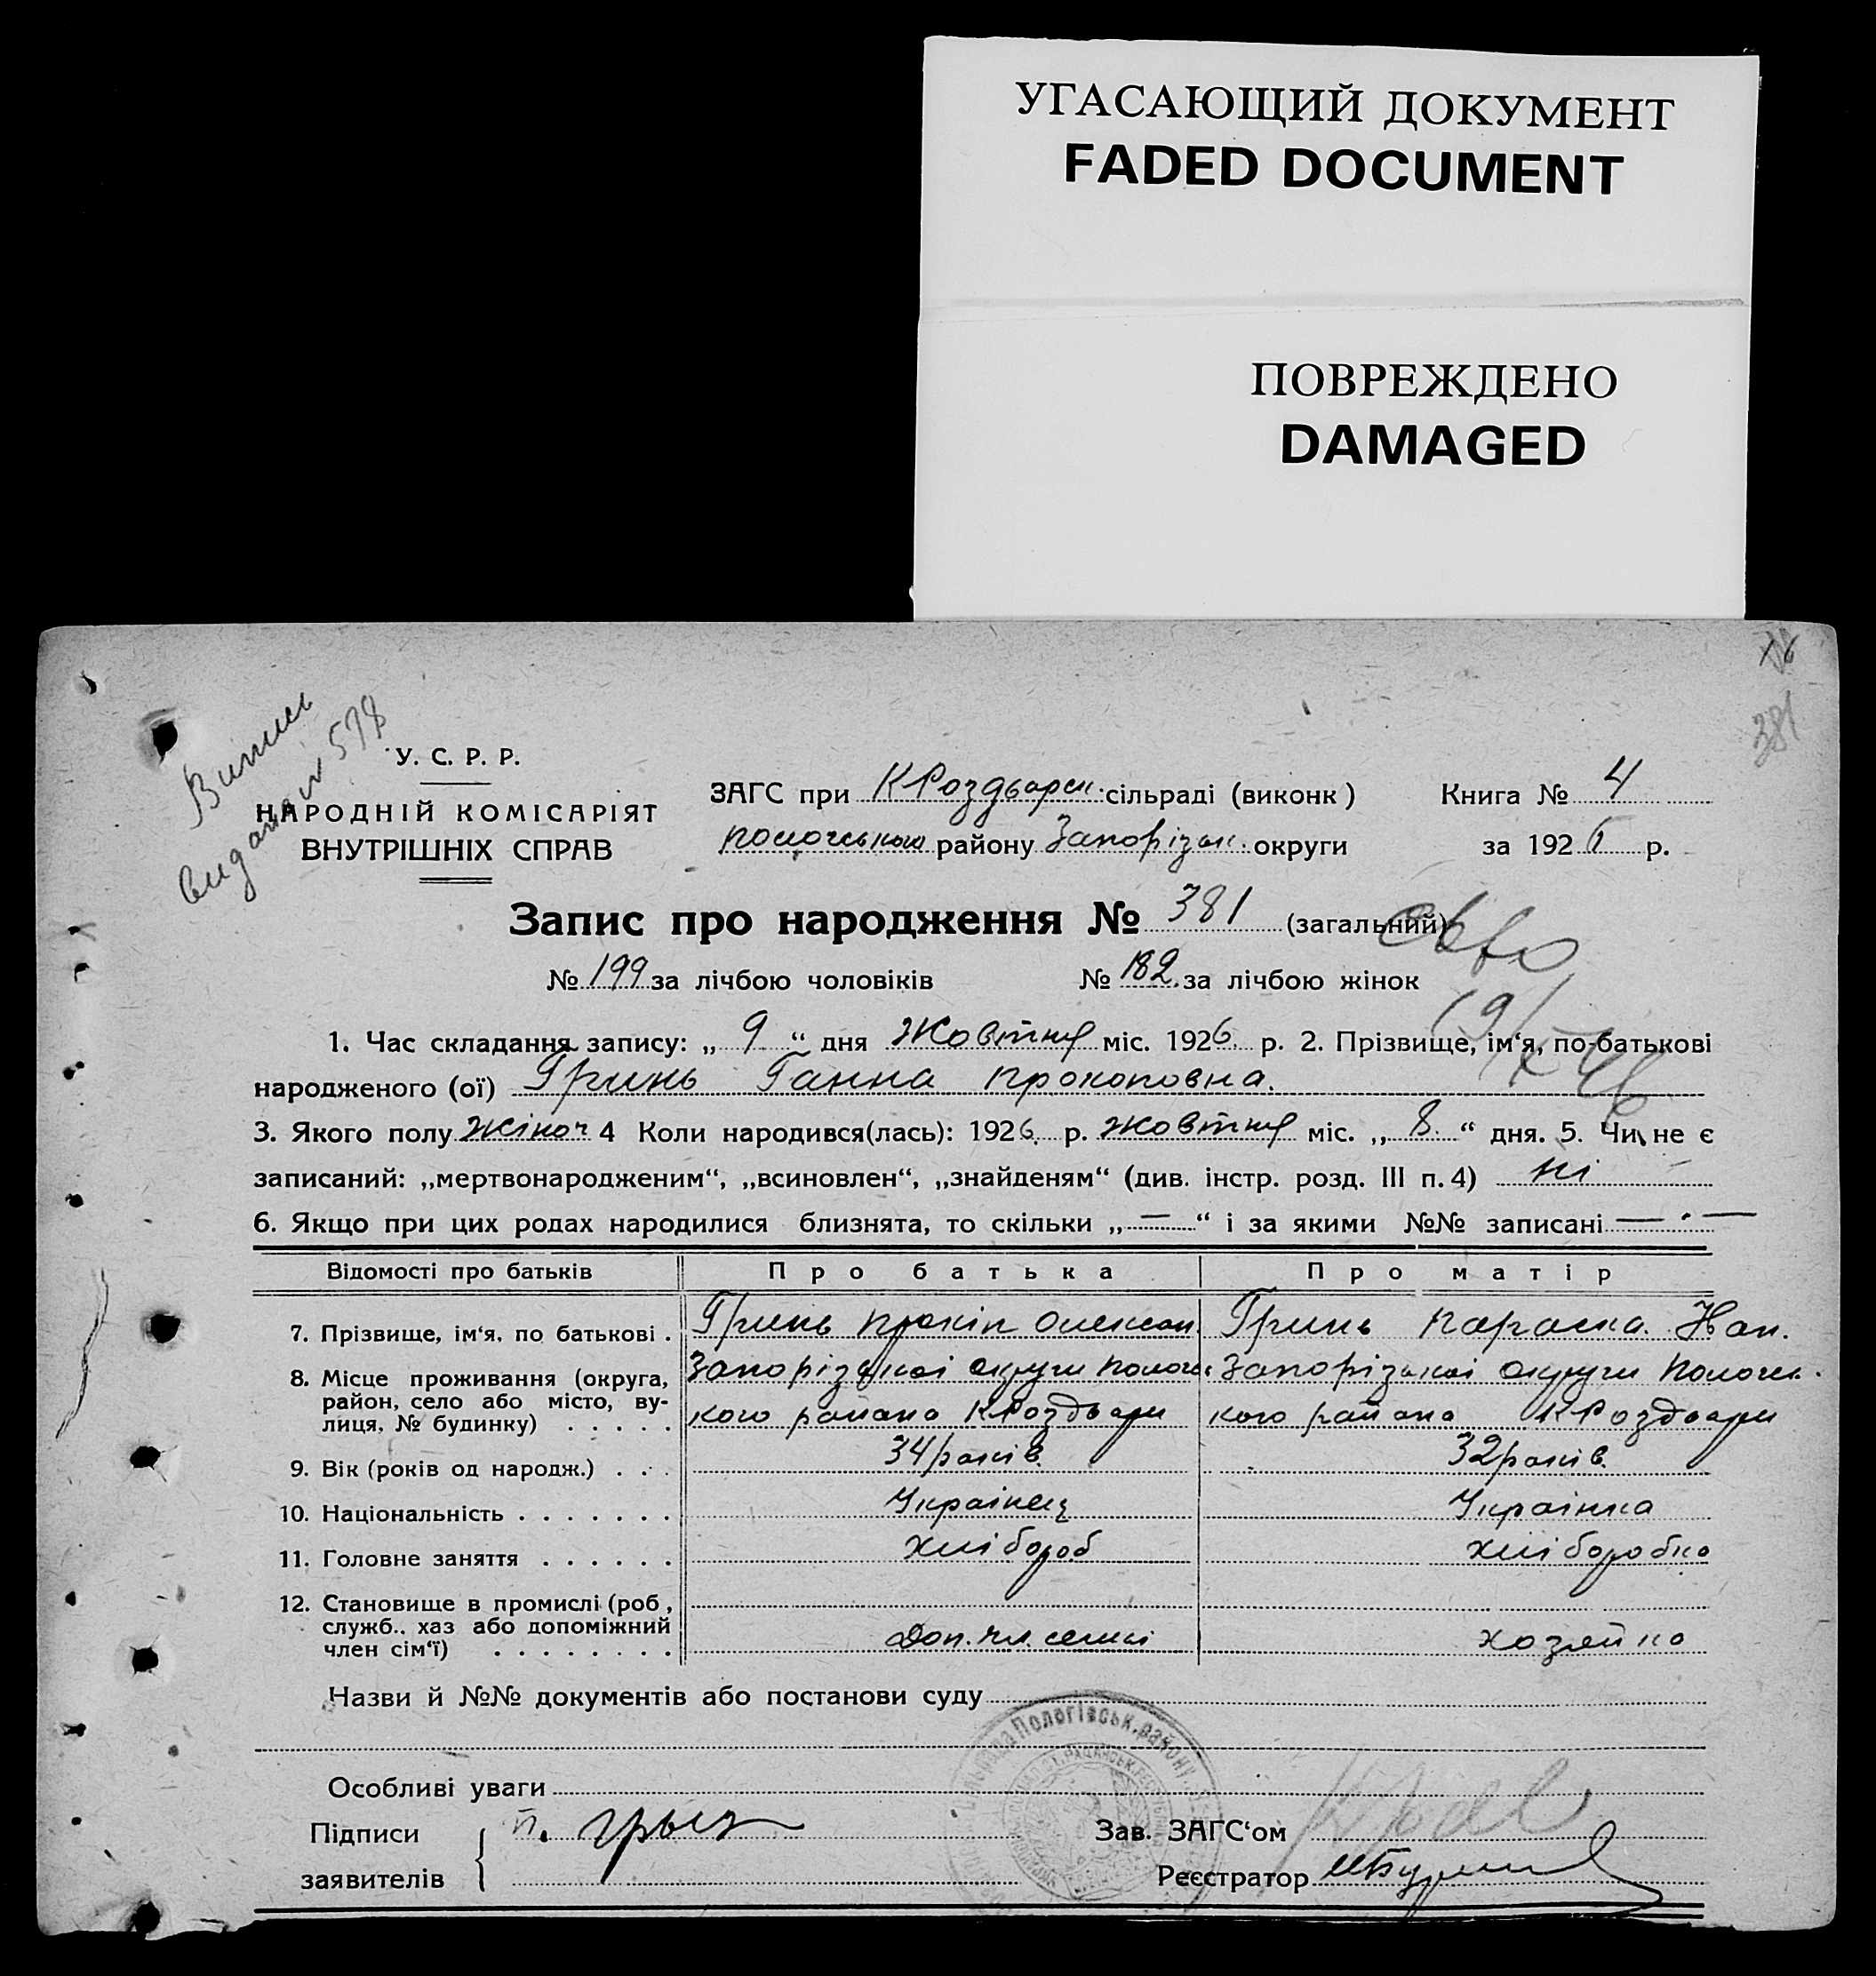 УГАСАЮЩИЙ ДОКУМЕНТ
FADED DOCUMENT
ПОВРЕЖДЕНО
DAMAGED
16
381
Випись
видана 578
У. С. Р. Р.
НАРОДНІЙ КОМІСАРІЯТ
ВНУТРІШНІХ СПРАВ
ЗАГС при КРоздорск. сільраді (виконк) Книга № 4
району Запорізьк. округи за 1926 р.
Запис про народження № 381 (загальний)
№ 199 за лічбою чоловіків № 182 за лічбою жінок
1. Час складання запису: „ 9 “ дня Жовтня міс. 1926 р. 2. Прізвище, ім‘я, по-батькові
народженого (ої) Гринь Ганна Прокоповна.
3. Якого полу Жіноч 4 Коли народився(лась): 1926 р. Жовтня міс. „ 8. “ дня. 5. Чи не є
записаний: „мертвонародженим“, „всиновлен“, „знайденям“ (див. інстр. розд. III п. 4) ні
6. Якщо при цих родах народилися близнята, то скільки „ — “ і за якими №№ записані —
Відомості про батьків Про батька Про матір
7. Прізвище, ім‘я, по батькові . Гринь Прокіп Олексан. Гринь Параска Іван.
8. Місце проживання (округа, Запорізької округи Пологс Запорізької округи Пологсь.
район, село або місто, ву-
лиця, № будинку) . . . . . кого района КРоздори кого района КРоздори
9. Вік (років од народж.) . . . 34 років. 32 років.
10. Національність . . . . . . . Украінец Украінка
11. Головне заняття . . . . . . хлібороб хліборобка
12. Становище в промислі (роб,
служб., хаз або допоміжний
член сім‘ї) . . . . . . . . Доп. чл. семьі хозяйка
Назви й №№ документів або постанови суду
Особливі уваги
Підписи П. Грын
заявителів
Зав. ЗАГС‘ом
Реєстратор
Пологівськ. району